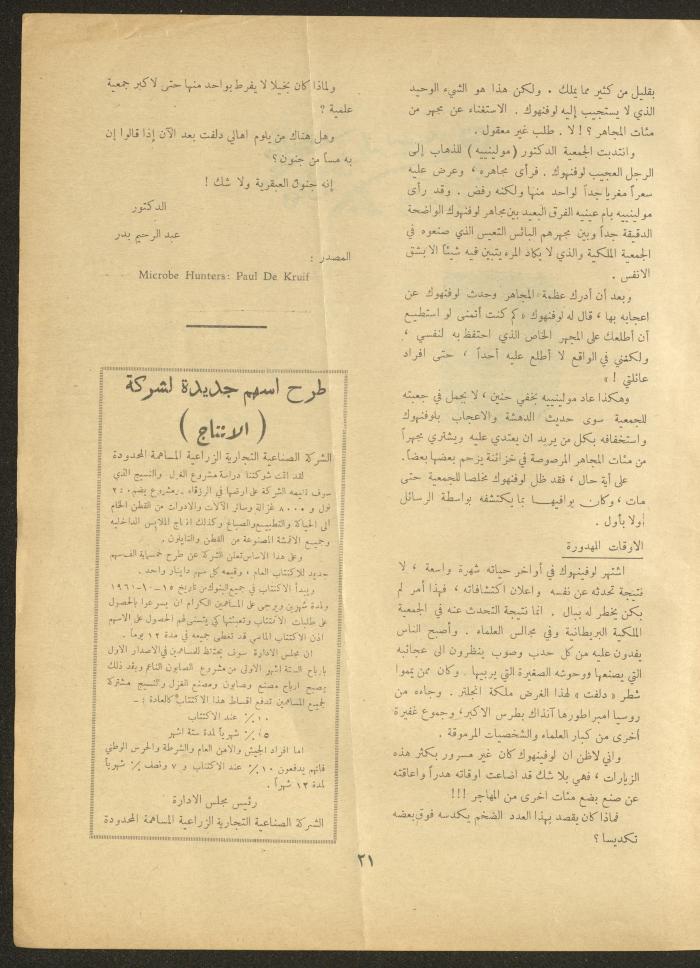 بقليل من كثير مما يملك . ولكن هذا هو الشيء الوحيد
الذي لا يستجيب إليه لوفنهوك . الاستغناء عن مجهر من
مئات المجاهر ؟ ! لا . طلب غير معقول .
وانتدبت الجمعية الدكتور ( مولينييه ) للذهاب إلى
الرجل العجيب لوفنهوك . فرأى مجاهره ، وعرض عليه
سعراً مغرياً جداً لواحد منها ولكنه رفض . وقد رأى
مولينييه بام عينيه الفرق البعيد بين مجاهر لوفنهوك الواضحة
الدقيقة جداً وبين مجهرهم البائس التعيس الذي صنعوه في
الجمعية الملكية والذي لا يكاد المرء يتبين فيه شيئاً الا بشق
الانفس .
وبعد أن أدرك عظمة المجاهر وحدث لوفنهوك عن
اعجابه بها ، قال له لوفنهوك « كم كنت أتمنى لو استطيع
أن أطلعك على المجهر الخاص الذي احتفظ به لنفسي ،
ولكنني في الواقع لا أطلع عليه أحداً ، حتى افراد
عائلتي ! »
وهكذا عاد مولينييه بخفي حنين ، لا يحمل في جعبته
للجمعية سوى حديث الدهشة والاعجاب بلوفنهوك
واستخفافه بكل من يريد ان يعتدي عليه ويشتري مجهراً
من مئات المجاهر المرصوصة في خزائنة يزحم بعضها بعضاً .
على أية حال ، فقد ظل لوفنهوك مخلصا للجمعية حتى
مات ، وكان يوافيهـا بما يكتشفه بواسطة الرسائل
أولا بأول .
الاوقات المهدورة
اشتهر لوفينهوك في أواخر حياته شهرة واسعة ، لا
نتيجة تحدثه عن نفسه واعلان اكتشافاته ، فهذا أمر لم
يكن يخطر له ببال . انما نتيجة التحدث عنه في الجمعية
الملكية البريطانية وفي مجالس العلماء . وأصبح الناس
يفدون عليه من كل حدب وصوب ينظرون الى عجائبه
التي يصنعها ووحوشه الصغيرة التي يربيها . وكان ممن يمموا
شطر « دلفت » لهذا الغرض ملكة انجلتر . وجاءه من
روسيا امبراطورها آنذاك بطرس الاكبر، وجموع غفيرة
أخرى من كبار العلماء والشخصيات المرموقة .
واني لاظن ان لوفينهوك كان غير مسرور بكثر هذه
الزيارات ، فهي بلا شك قد اضاعت اوقاته هدراً واعاقته
عن صنع بضع مئات اخرى من المجاهر !!!
فماذا كان يقصد بهذا العدد الضخم يكدسه فوق بعضه
تكديسا ؟
ولماذا كان بخيلا لا يفرط بواحد منها حتى لاكبر جمعية
علمية ؟
وهل هناك من يلوم اهالي دلفت بعد الآن إذا قالوا إن
به مساً من جنون ؟
إنه جنون العبقرية ولا شك !
الدكتور
عبد الرحيم بدر
المصدر :
Microbe Hunters: Paul De Kruif
طرح اسهم جديدة لشركة
( الانتاج )
الشركة الصناعية التجارية الزراعية المساهمة المحدودة
لقد اتمت شركتنا دراسة مشروع الغزل والنسيج الذي
سوف تقيمه الشركة على ارضها في الزرقاء ، مشروع يضم ٥٢
نول و ٨٠٠٠ غزالة وسائر الآلات والادوات من القطن الخام
الى الحياكة والتطبيع والصباغ وكذلك انتاج الملابس الداخليه
وجميع الاقمشة المصنوعة من القطن والنايلون .
وعلى هذا الاساس تعلن الشركة عن طرح خمسماية الف سهم
جديد للاكتتاب العام ، وقيمه كل سهم دينار واحد .
ويبدأ الاكتتاب في جميع البنوك من تاريخ ١٥ - ١٠ - ١٩٦١
ولمدة شهرين ويرجى على المساهمين الكرام ان يسرعوا بالحصول
على طلبات الاكتتاب وتعبئتها كي يتسنى لهم الحصول على الاسهم
اذن الاكتتاب الماضي قد تغطى جميعه في مدة ١٢ يوماً .
ان مجلس الادارة سوف يحتفظ للمساهمين في الاصدار الاول
بارباح الستة اشهر الاولى من مشروع الصابون الناعم وبعد ذلك
يصبح ارباح مصنع وصابون ومصنع الغزل والنسيج مشتركة
لجميع المساهمين تدفع اقساط هذا الاكتتاب كالعادة : ـ
١٠٪ عند الاكتتاب
١٥٪ شهرياً لمدة ستة اشهر
اما افراد الجيش والامن العام والشرطة والحرس الوطني
فانهم يدفعون ١٠٪ عند الاكتتاب و ٧ ونصف ٪ شهرياً
لمدة ١٢ شهراً .
رئيس مجلس الادارة
الشركة الصناعية التجارية الزراعية المساهمة المحدودة
٢١